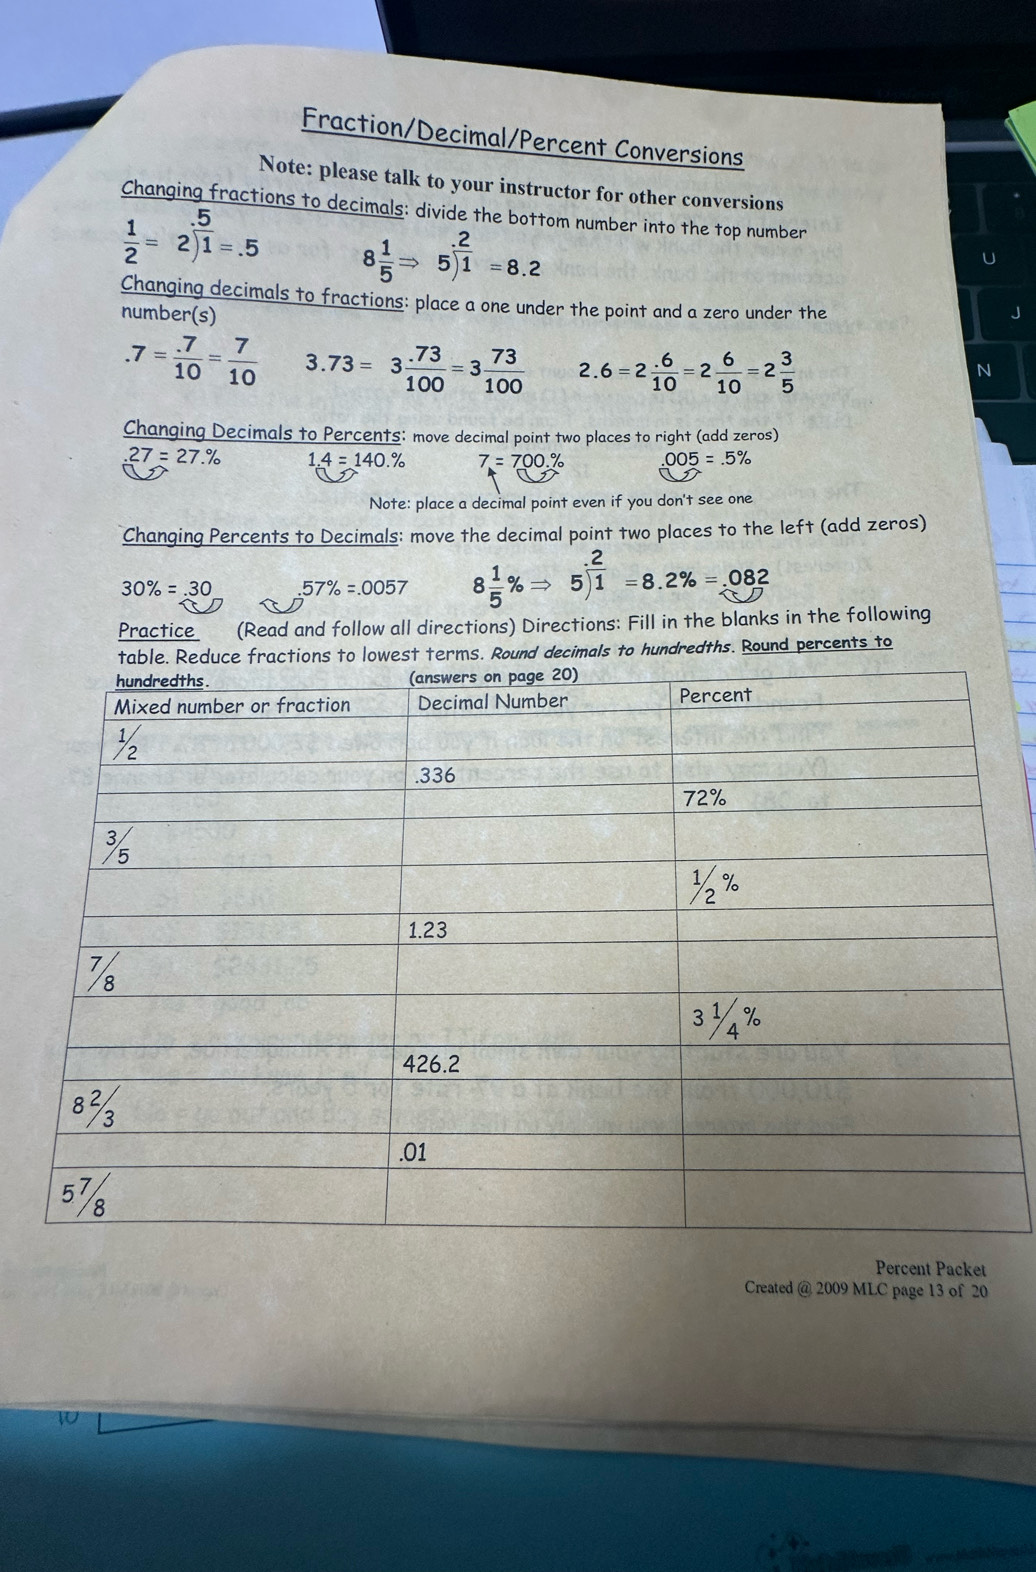 Fraction/Decimal/Percent Conversions
Note: please talk to your instructor for other conversions
Changing fractions to decimals: divide the bottom number into the top number
1/2 = 2)1 = .5 .5 8 1/5 ⇒ 5)1 = 8.2 .2
Changing decimals to fractions: place a one under the point and a zero under the
number(s)
.7 = .7/10 = 7/10 3.73 = 3 .73/100 = 3 73/100 2.6 = 2 .6/10 = 2 6/10 = 2 3/5
Changing Decimals to Percents: move decimal point two places to right (add zeros)
.27 = 27.% 1.4 = 140.% 7 = 700.% .005 = .5%
Note: place a decimal point even if you don't see one
Changing Percents to Decimals: move the decimal point two places to the left (add zeros)
30% = .30 .57% =.0057 8 1/5 % ⇒ 5)1 = 8.2% = .082 .2
Practice (Read and follow all directions) Directions: Fill in the blanks in the following
table. Reduce fractions to lowest terms. Round decimals to hundredths. Round percents to
hundredths. (answers on page 20)
Mixed number or fraction Decimal Number Percent
1/2
.336
72%
3/5
1/2 %
1.23
7/8
3 1/4 %
426.2
8 2/3
.01
5 7/8
Percent Packet
Created @ 2009 MLC page 13 of 20
U
J
N